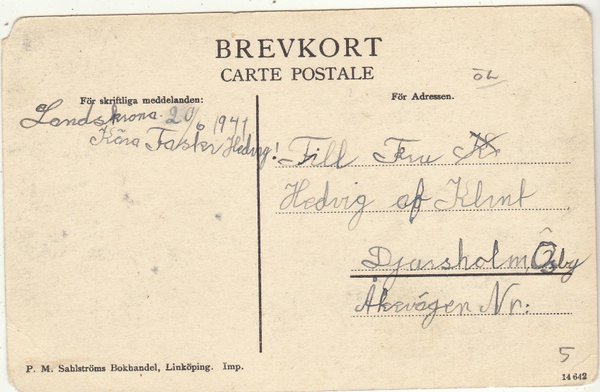 BREVKORT
CARTE POSTALE
öL
För skriftliga meddelanden:
För Adressen.
Landskrona 20/6 1941
Kära Faster Hedvig!
Till Fru
Hedvig af Klint
Djursholm, Ösby
Åkevägen Nr:
5
P. M. Sahlströms Bokhandel, Linköping. Imp.
14642